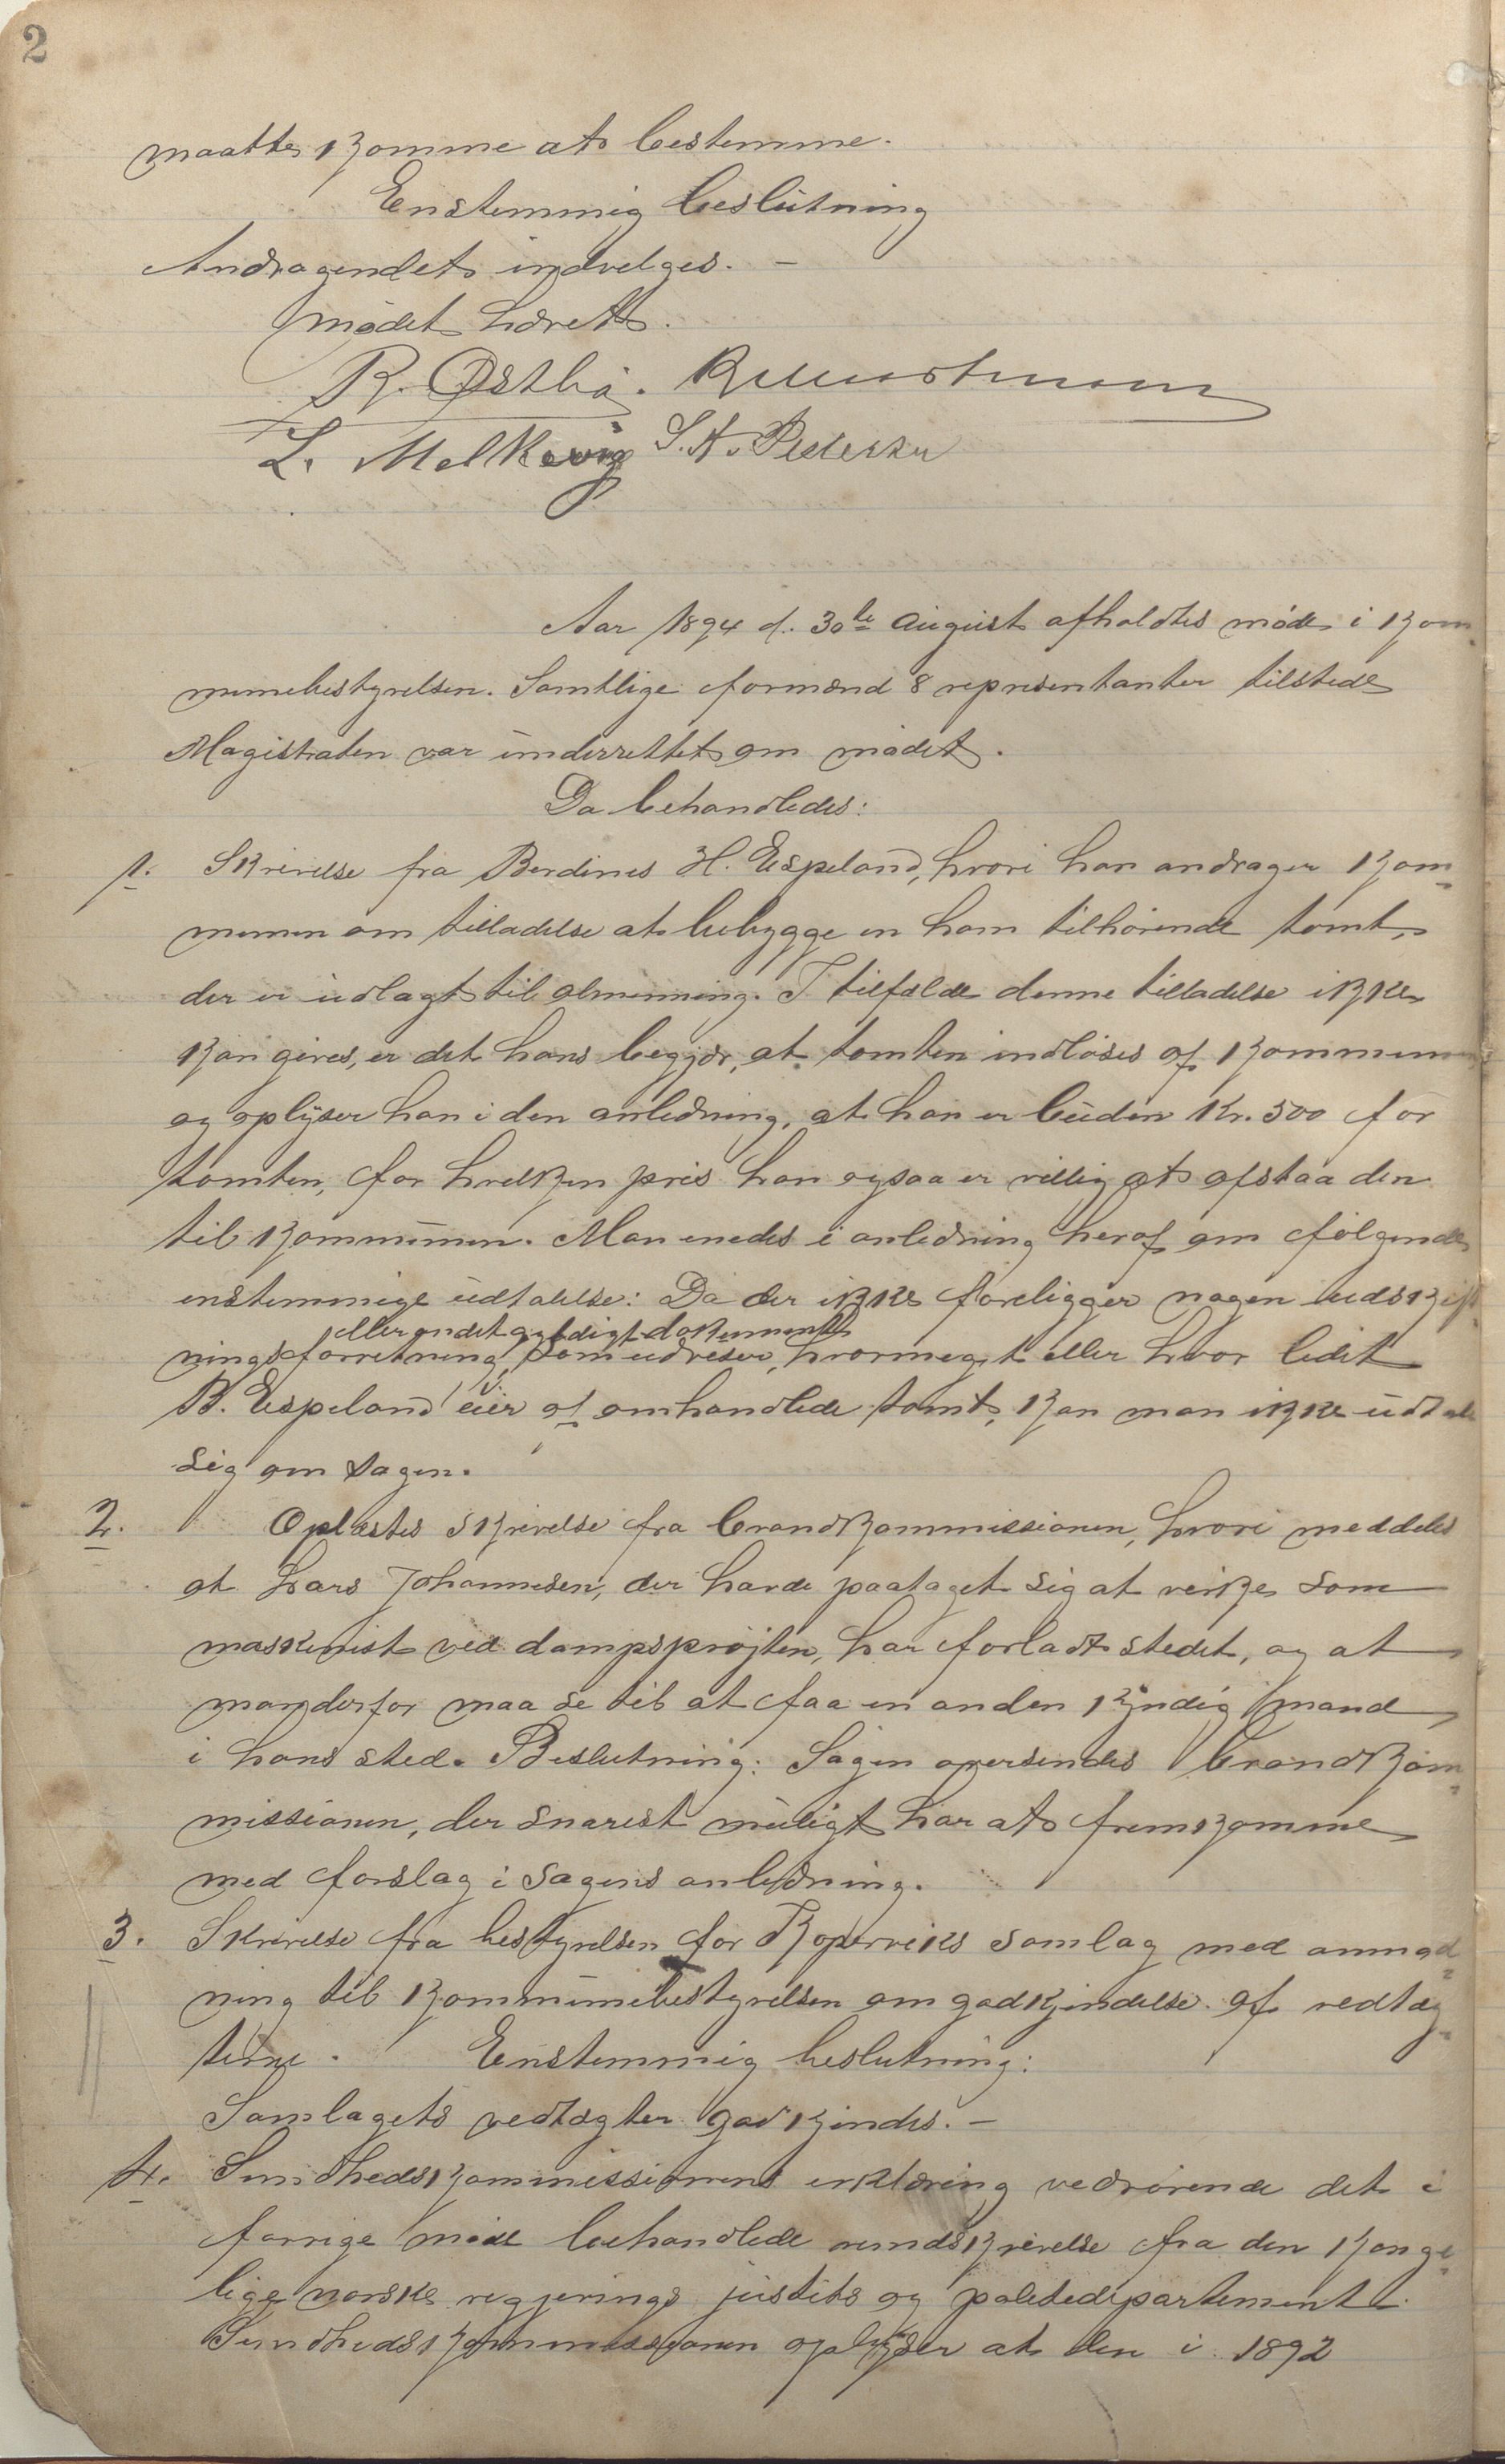 2
maatte komme at bestemme.
Enstemmig beslutning
Andragendet indvelges. –
Mødet hævet.
R. Østbø.
L. Melkevig S. A. Pedersen
Aar 1894 d. 30te august afholdtes møde i kom
munebestyrelsen. Samtlige formænd 8 representanter tilstede
Magistraten var underrettet om mødet.
Da behandledes:
1. Skrivelse fra Berdines H. Espeland, hvori han andrager kom-
munen om tilladelse at bebygge en ham tilhørende tomt,
der er udlagt til almenning. I tilfælde denne tilladelse ikke
kan gives, er det hans begjær, at tomten indløses af kommunen
og oplyser han i den anledning, at han er buden Kr. 500 for
tomten, for hvilken pris han ogsaa er villig at afstaa den
til kommunen. Man enedes i anledning heraf om følgende
enstemmige udtalelse: Da der ikke foreligger nogen udskift
eller andet gyldigt dokument
ningsforretning, som udviser, hvormeget eller hvor lidet
B. Espeland eier af omhandlede tomt, kan man ikke udtale
sig om sagen.
2. Oplæstes skrivelse fra brandkommissionen, hvori meddeles
at Lars Johannesen, der havde paataget sig at virke som
maskinist ved dampsprøjten, har forladt stedet, og at
man derfor maa se til at faa en anden kyndig mand
i hans sted. Beslutning: Sagen oversendes brandkom-
missionen, der snarest muligt har at fremkomme
med forslag i sagens anledning.
3. Skrivelse fra bestyrelsen for Kopperviks samlag med anmod-
ning til kommunebestyrelsen om godkjendelse af vedtæg-
terne. Enstemmig beslutning:
Samlagets vedtægter godkjendes. –
4. Sundhedskommissionens erklæring vedrørende det i
forrige møde behandlede rundskrivelse fra den konge-
lige norske regjerings justits og politidepartement.
Sundhedskommissionen oplyser at den i 1892